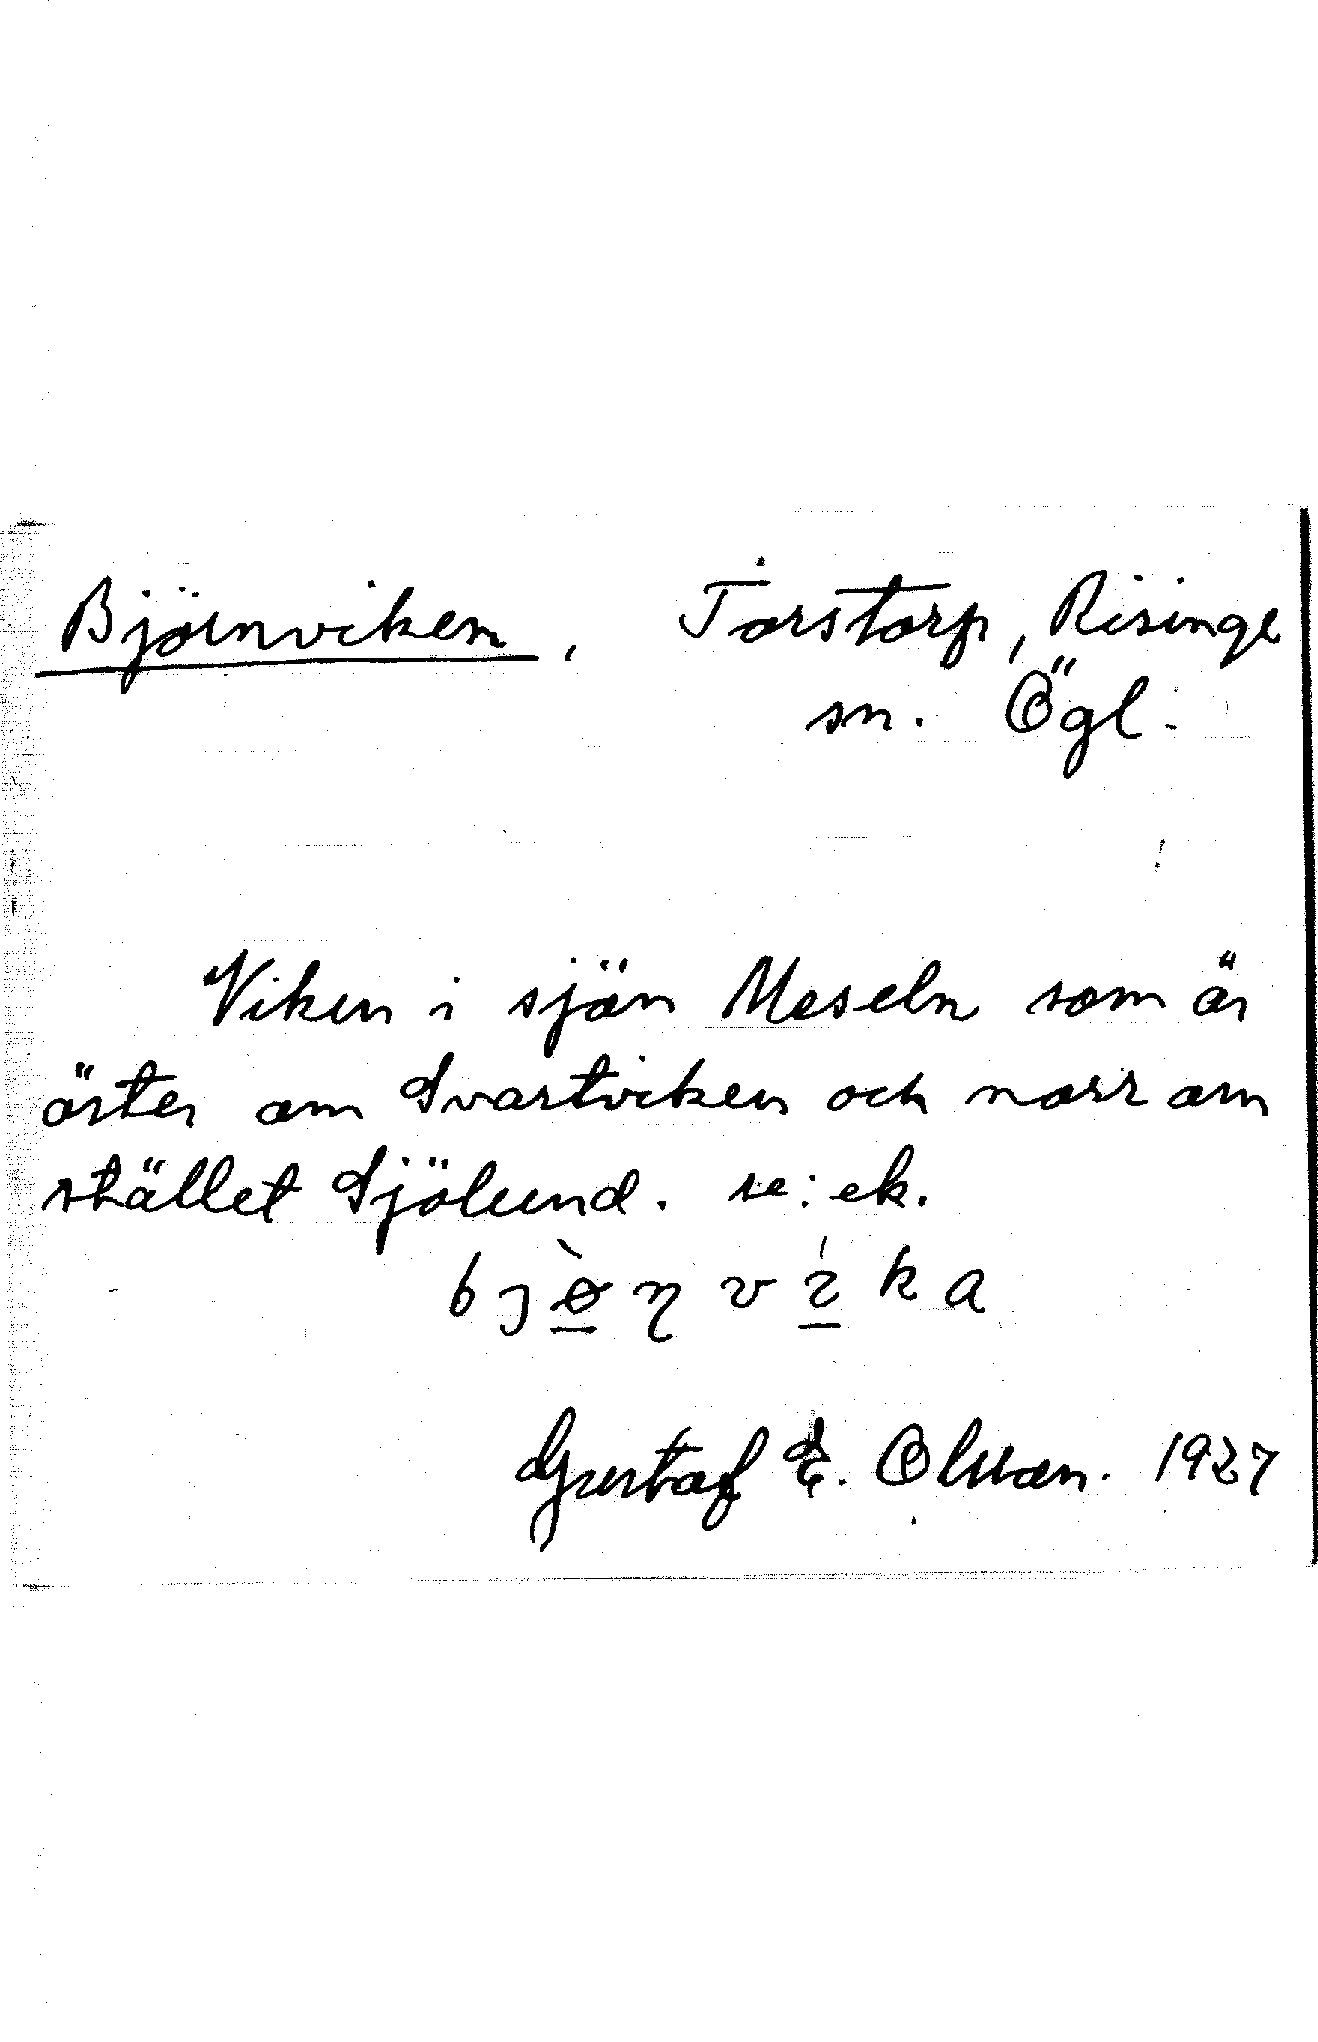 Björnviken, Torstorp, Risinge
sn. Ögl.
Viken i sjön Meseln som är
öster om Svartviken och norr om
stället Sjölund. se: ek.
bjø̀ɳvı́ka
Gustaf E. Olsson. 1927